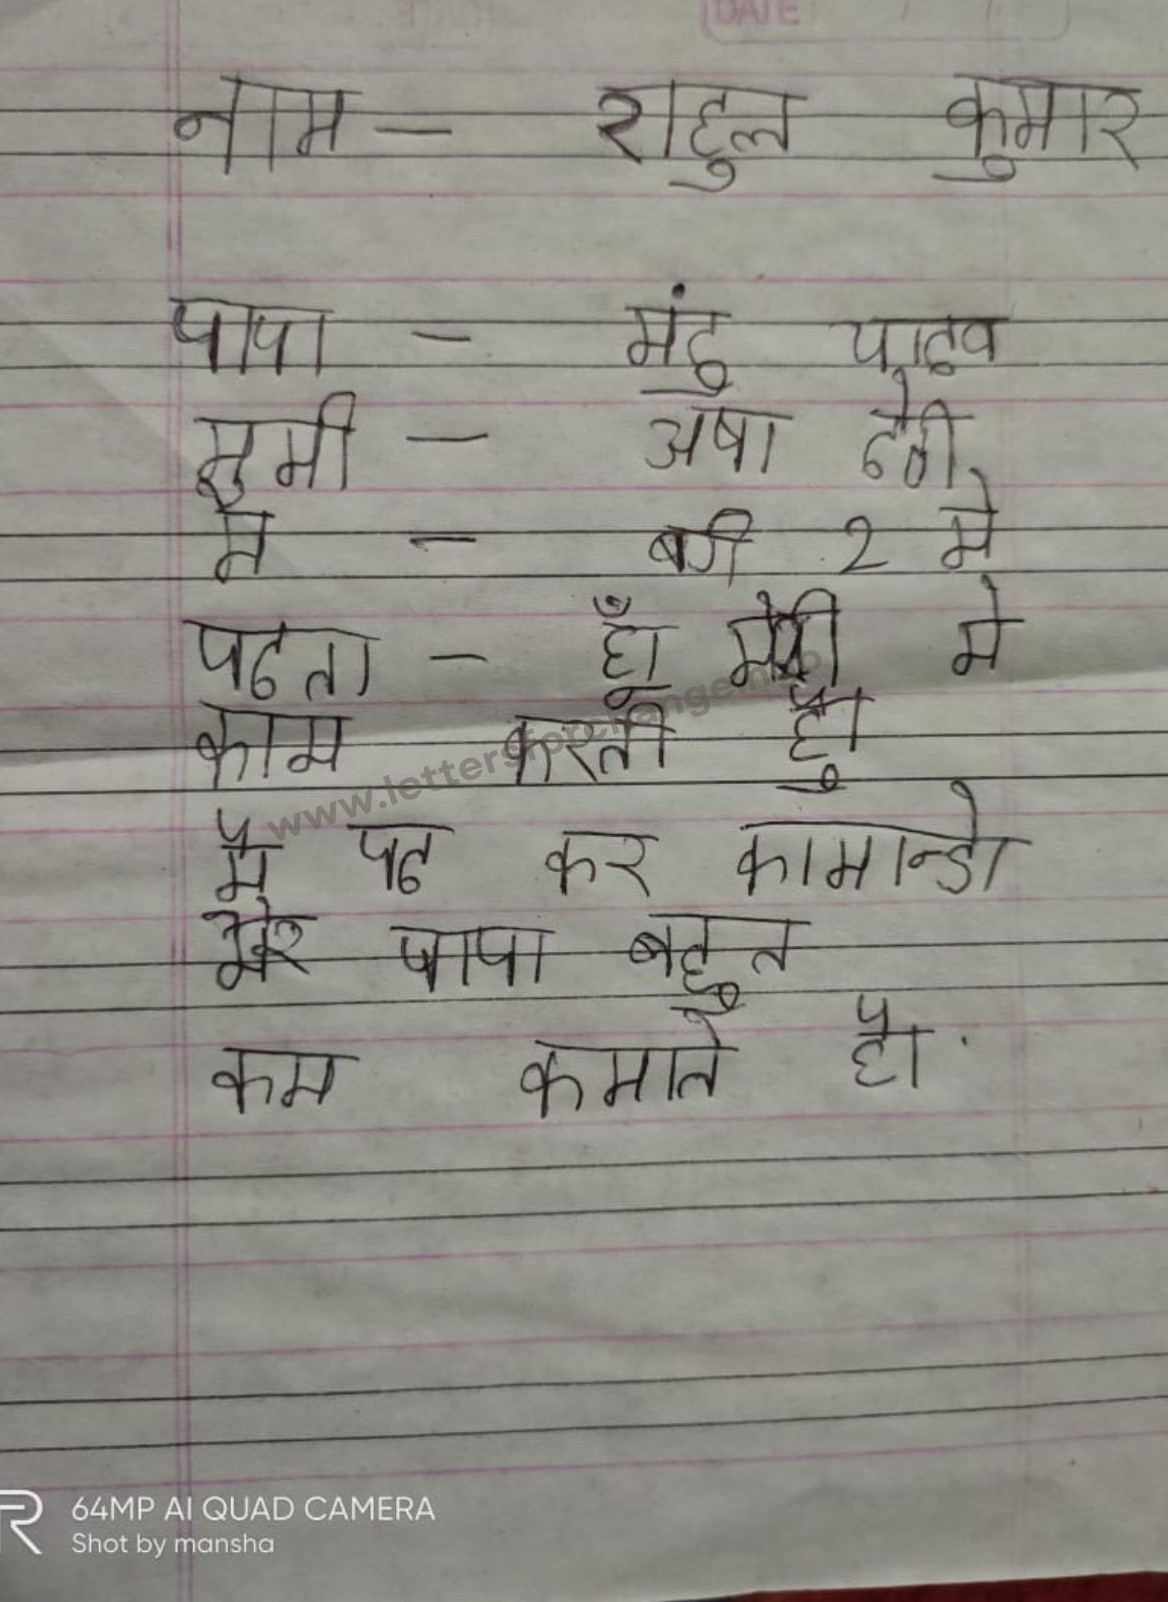 DATE
नाम — राहुल कुमार
पापा — मंटु यादव
मुमी — अषा देवी
म — बर्ग 2 मे
पढता — हूँ मेरी मे
काम करती हु।
मै पढ कर कामान्डो
मेरे पापा बहुत
कम कमाते है।
www.lettersforchange.in
64MP AI QUAD CAMERA
Shot by mansha